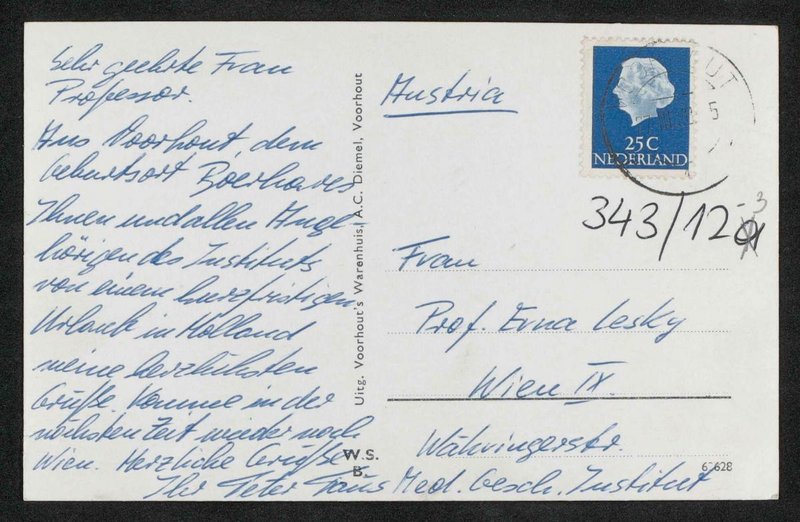 Sehr geehrte Frau
Professor.
Aus Voorhout, dem
Geburtsort Boerhaves
Ihnen und allen Ange-
hörigen des Instituts
von einem kurzfristigen
Urlaub in Holland
meine herzlichsten
Grüße. Komme in der
nächsten Zeit wieder nach
Wien. Herzliche Grüße
Ihr Peter
Uitg. Voorhout's Warenhuis, A.C. Diemel, Voorhout
W.S.
B.
Austria
25C
NEDERLAND
343/12-3
Frau
Prof. Erna Lesky
Wien IX.
Währingerstr.
Med. Gesch. Institut